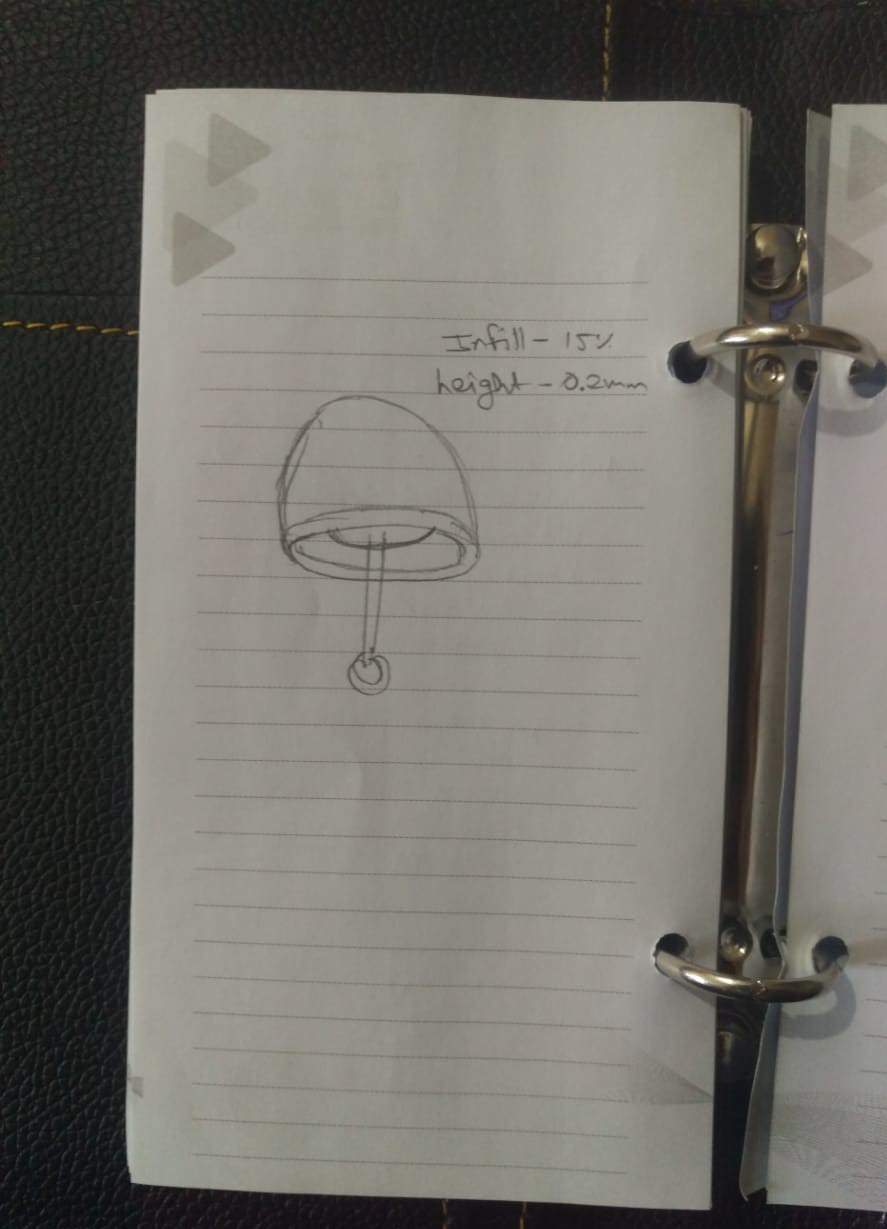 Infill - 15%
height - 0.2mm